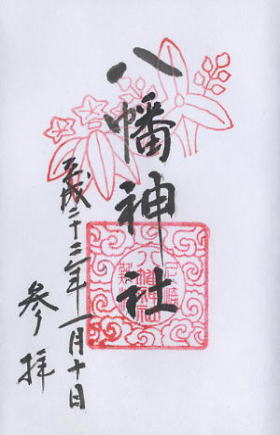 八幡神社
平成二十三年一月十日
参拝